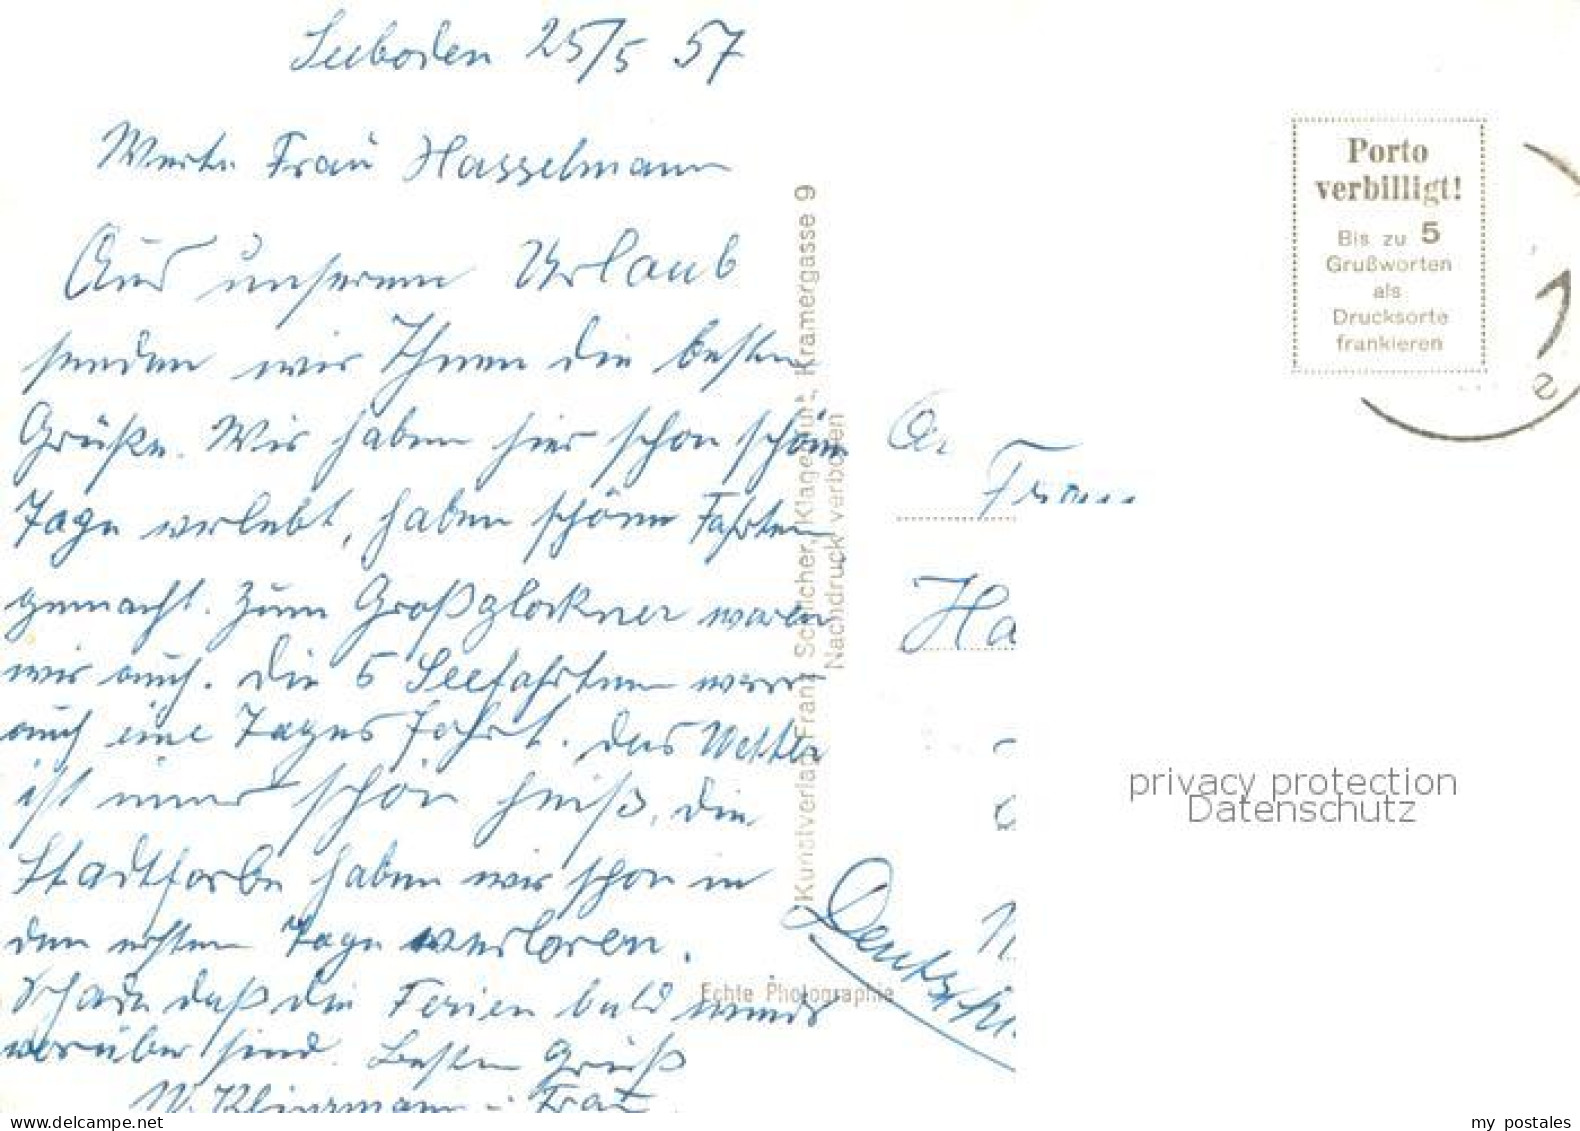 Seeboden 25/5 57
Werte Frau Hasselmann
Aus unserem Urlaub
senden wir Ihnen die besten
Grüße. Wir haben hier schon schöne
Tage verlebt, haben schöne Fahrten
gemacht. Zum Großglockner waren
wir auch. Die 5 Seefahrten war
auch eine Tages fahrt. Das Wetter
ist immer schön heiß, die
Stadtfarbe haben wir schon in
den ersten Tage verloren.
Schade daß die Ferien bald wieder
vorüber sind. Besten Gruß
W. Klingmann u Frau
Kunstverlag Franz Schlicher, Klagenfurt, Kramergasse 9
Nachdruck verboten
Echte Photographie
Porto
verbilligt!
Bis zu 5
Grußworten
als
Drucksorte
frankieren
An
Frau
Ha
Deutschl.
privacy protection
Datenschutz
www.delcampe.net
my_postales